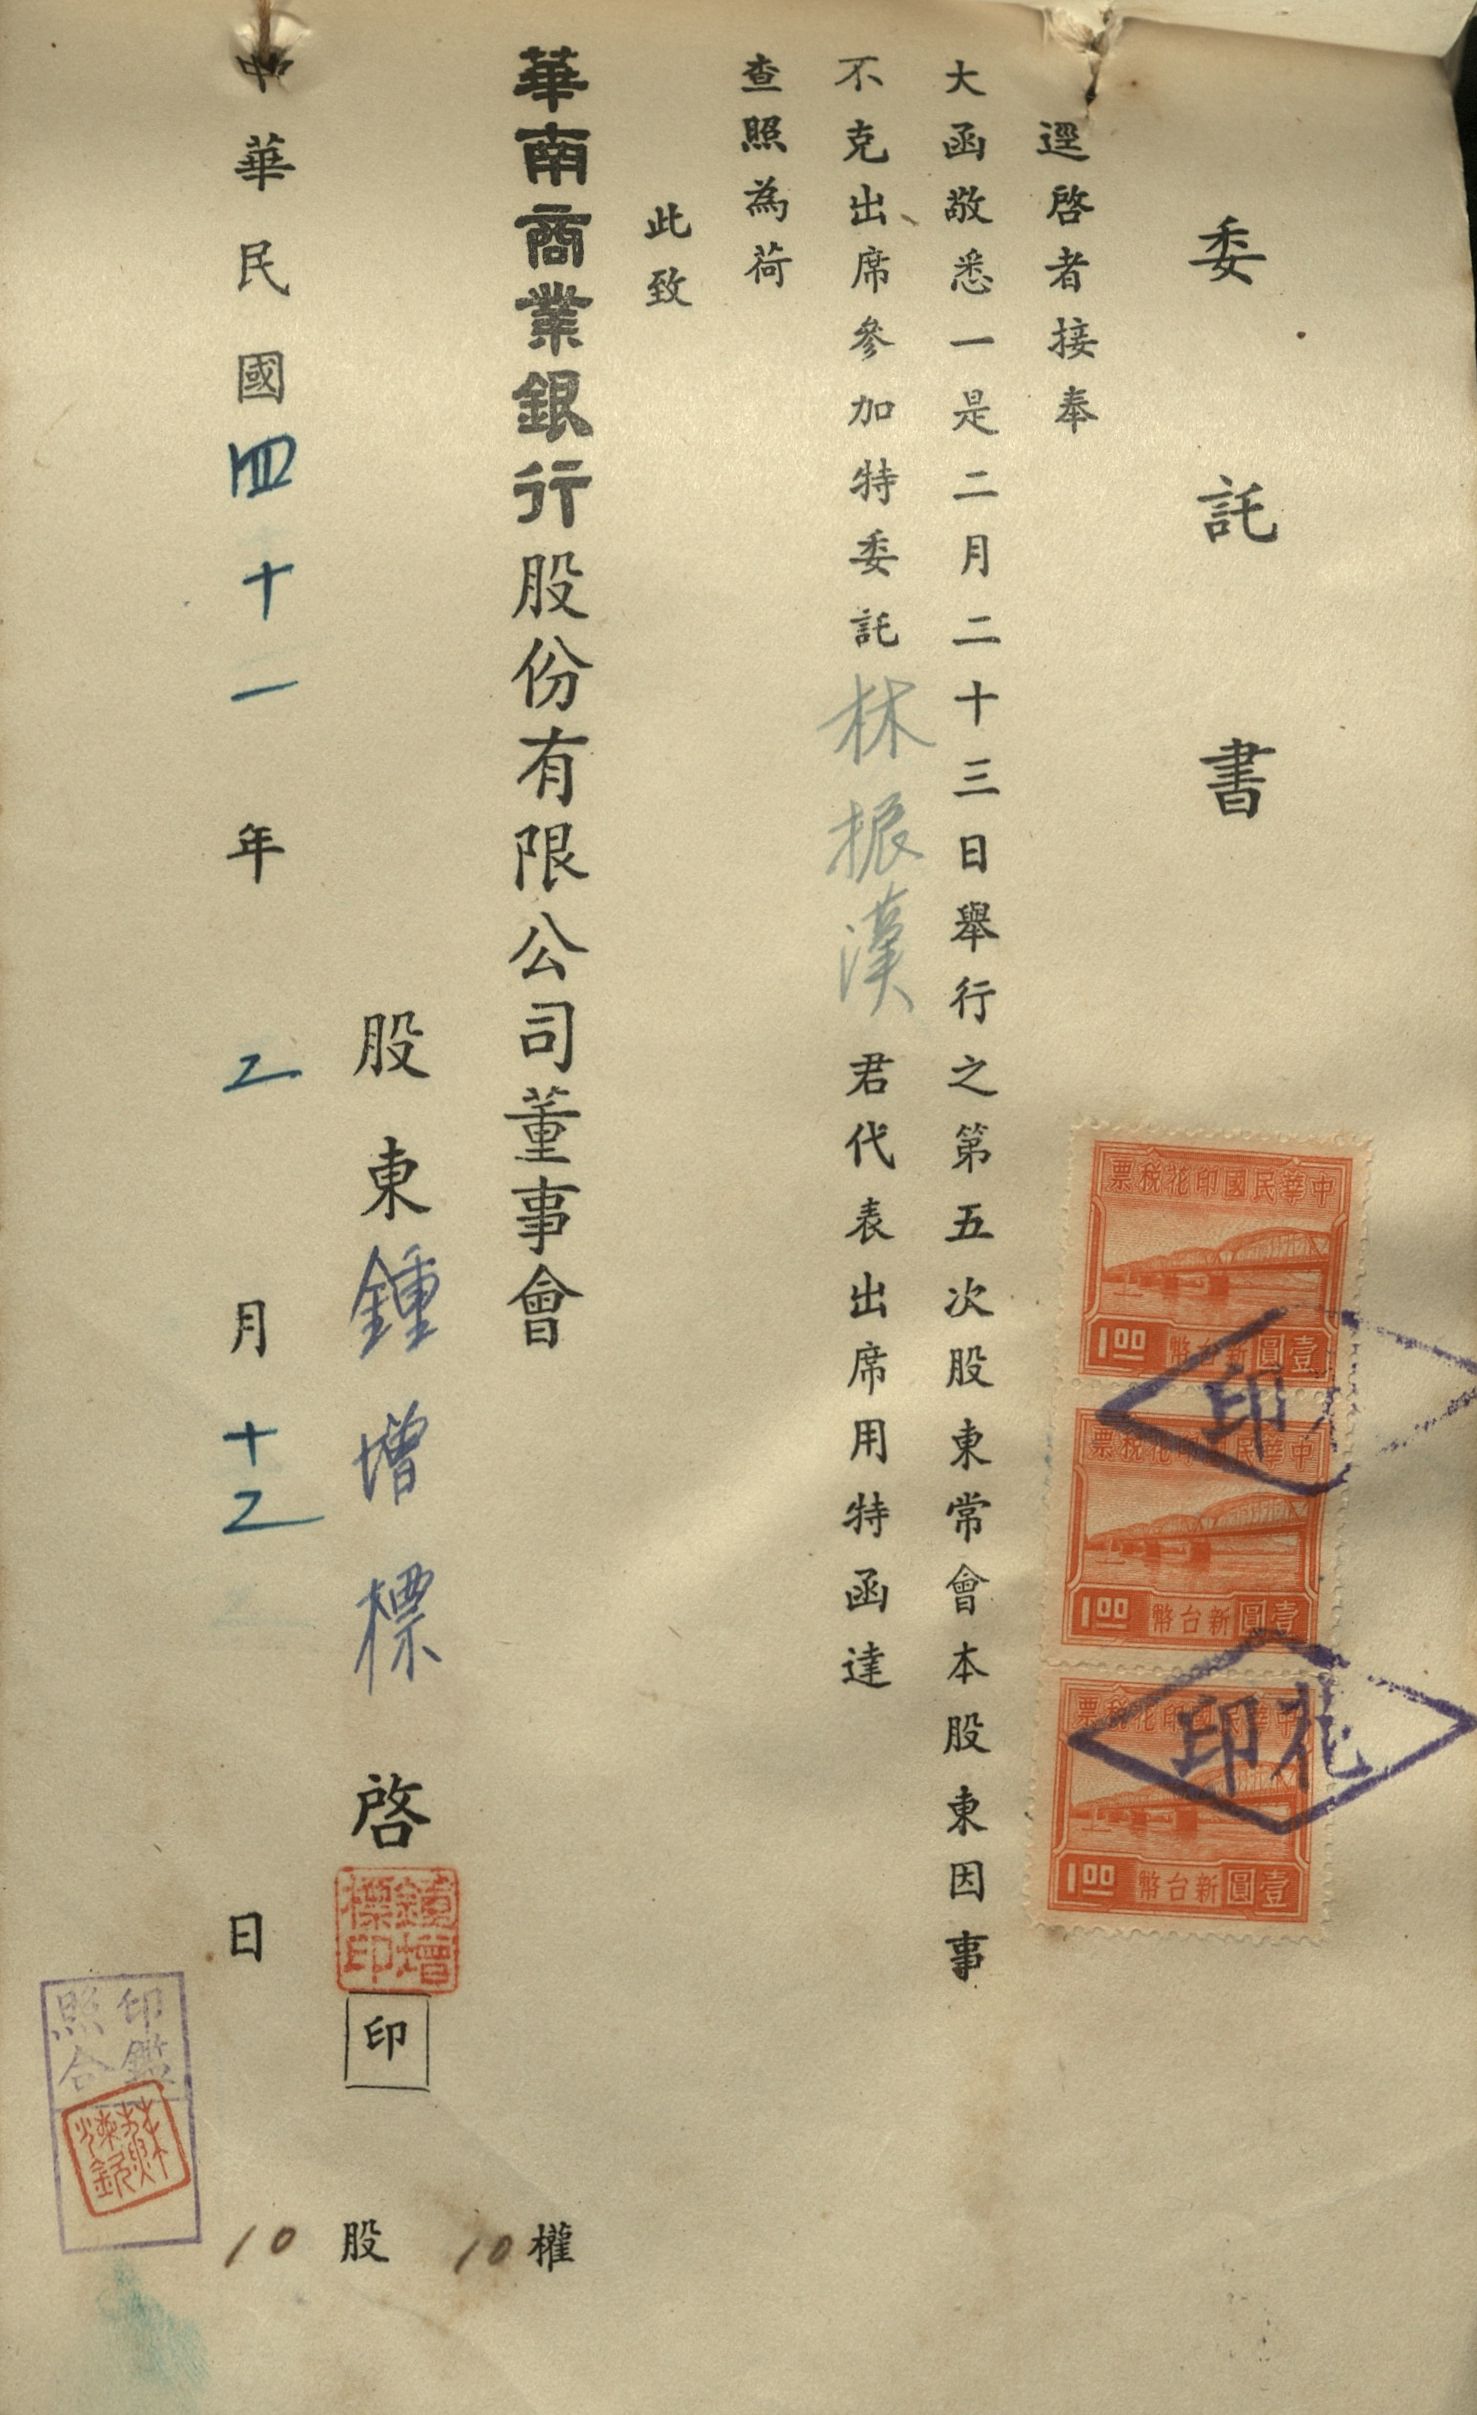 委託書
逕啓者接奉
大函敬悉一是二月二十三日舉行之第五次股東常會本股東因事
不克出席參加特委託林振漢君代表出席用特函達
查照為荷
此致
華南商業銀行股份有限公司董事會
股東鍾增標啓
印
中華民國四十一年二月十二日
10權
10股
中華民國印花稅票
壹圓新台幣
1.00
中華民國印花稅票
壹圓新台幣
1.00
中華民國印花稅票
壹圓新台幣
1.00
印
花印
鍾增標印
印鑑照合